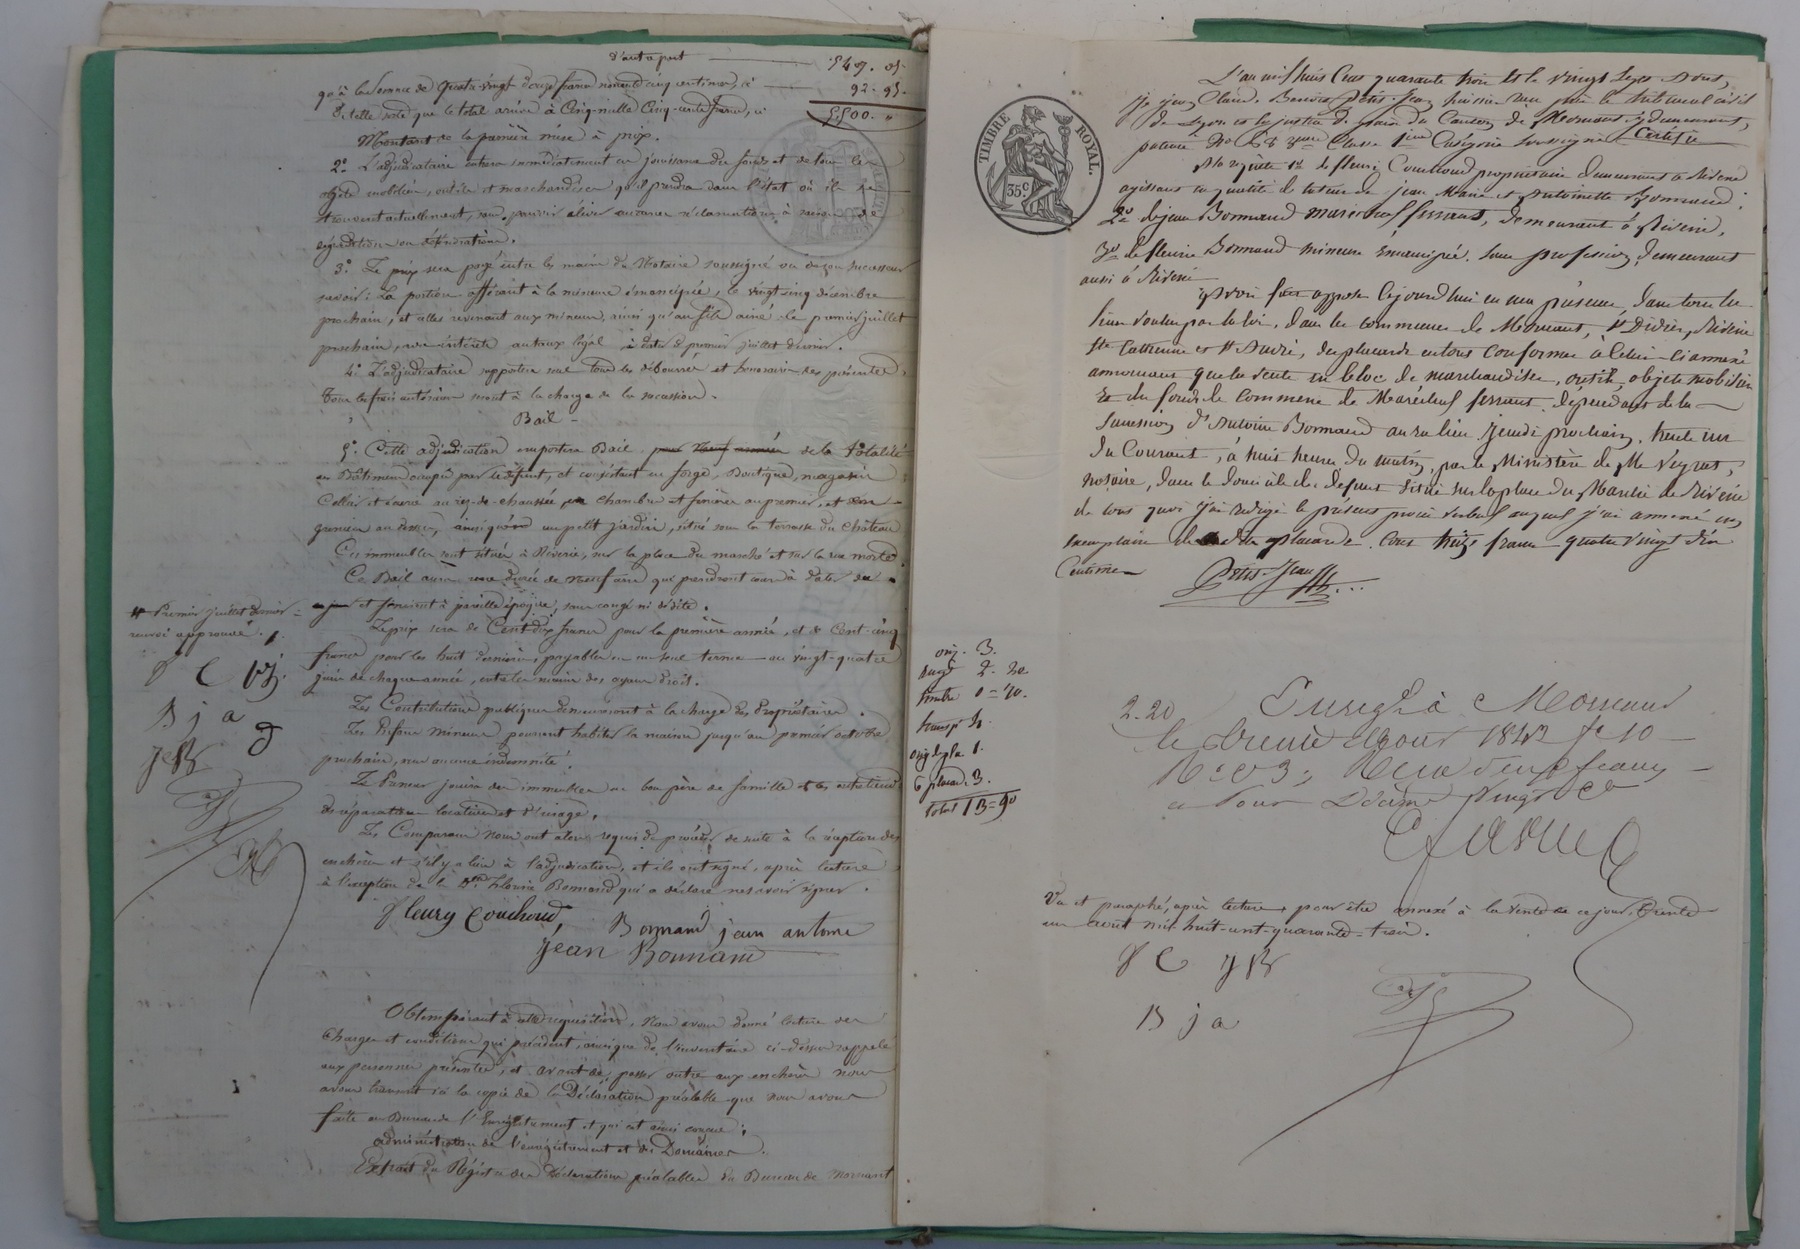 d'autre part 549. 05
qu'à la somme de quatre-vingt douze francs nonante cinq centimes, ci 92. 95.
De telle sorte que le total arrive à Cinq mille Cinq cents francs, ci 5,500. "
Montant de la première mise à prix.
2.º L'adjudicataire entrera immédiatement en jouissance du fonds et de tous les
objets mobiliers, outils et marchandises qu'il prendra dans l'état où ils se
trouvent actuellement, sans pouvoir élever aucunes réclamations à raison de
dégradations ou détériorations.
3.º Le prix sera payé entre les mains du Notaire soussigné ou de son successeur
savoir: la portion afférant à la mineure émancipée, le vingt cinq décembre
prochain, et celles revenant aux mineurs, ainsi qu'au fils ainé le premier juillet
prochain, avec intérêts au taux légal à dater du premier juillet dernier.
4.º L'adjudicataire supportera seul tous les déboursés et honoraires des présentes,
Tous les frais antérieurs sont à la charge de la succession.
Bail
5.º Cette adjudication emportera Bail pour Neuf années de la totalité
du Bâtiment occupé par le défunt, et consistant en forge, Boutique, magasin
Cellier et cave au rez-de-chaussée, chambre et fenière au premier, et
grenier au dessus, ainsi que un petit jardin, situé sous la terrasse du château
Ces immeubles sont situés à Riverie, sur la place du marché et sur la rue morte
Ce Bail aura une durée de neuf ans qui prendront cours à dater du
# Premier juillet dernier
renvoi approuvé.
ce jour et finiront à pareille époque, sans congé ni dédite.
Le prix sera de Cent dix francs pour la première année, et de Cent-cinq
francs pour les huit dernières, payables en un seul terme au vingt-quatre
juin de chaque année, entre les mains des ayans droit.
f C
B j a
J B
Les Contributions publiques demeureront à la charge des Propriétaires.
Les Enfans mineurs pourront habiter la maison jusqu'au premier octobre
prochain, sans aucune indemnité.
Le Preneur jouira des immeubles en bon père de famille et les entretiendra
de réparations locatives et d'usage.
Les Comparans nous ont alors requis de procéder de suite à la réception des
enchères et s'il y a lieu à l'adjudication, et ils ont signé, après lecture
à l'exception de la Dlle Fleurie Bonnand qui a déclaré ne savoir signer.
fleury Couchoud, Bonnand jean antoine
jean Bonnand
Obtempérant à cette réquisition, Nous avons donné lecture des
Charges et conditions qui précèdent, ainsi que de l'inventaire ci-dessus rappelé
aux personnes présentes, et avant de passer outre aux enchères nous
avons transcrit ici la copie de la Déclaration préalable que nous avons
faite au Bureau de l'Enregistrement et qui est ainsi conçue:
administration de l'enregistrement et des Domaines.
Extrait du Régistre des Déclarations préalables du Bureau de Mornant
TIMBRE ROYAL.
35c
L'an mil huit Cent quarante trois et le vingt sept Août,
je jean Claude Petit-Jean huissier reçu près le tribunal civil
de Lyon et la justice de paix du Canton de Mornant, y demeurant,
patenté Classe Catégorie soussigné Certifie
A la requête 1º de fleury Couchoud propriétaire demeurant à Riverie
agissant en qualité de tuteur de jean Marie et Antoinette Bonnand;
2º de jean Bonnand maréchal ferrant, demeurant à Riverie,
3º de fleurie Bonnand mineure émancipée, sans profession, demeurant
aussi à Riverie
Avoir fait apposer cejourd'hui en ma présence, dans tous les
lieux voulus par la loi, dans les communes de Mornant, St Didier, Riverie
Ste Catherine et St André, des placards en tous conformes à Celui-ci annexé
annonçant que la vente en bloc de marchandises, outils, objets mobiliers
et du fonds de Commerce de Maréchal ferrant, dépendant de la
succession d'Antoine Bonnand aura lieu jeudi prochain, trente un
du Courant, à huit heures du matin, par le Ministère de Me Veyrat,
notaire, dans le domicile du defunt situé sur la place du Marché de Riverie
de tout quoi j'ai rédigé le présent procès verbal auquel j'ai annexé un
exemplaire du dit placard. Cout treize francs quatre vingt dix
Centimes Petit-Jean
orig. 3.
enregt 2. 20
timbre 0=70.
transpt 4.
orig de pla 1.
6 placard. 3.
total 13=90
2.20
Enregt à Mornant
le trente Août 1843 fº 10
Rº Vº C 3, Reçu deux francs
et pour Décime vingt Ces
Vu et paraphé, après lecture, pour être annexé à la vente de ce jour, trente
un août mil huit-cent-quarante-trois.
f C J B
B j a